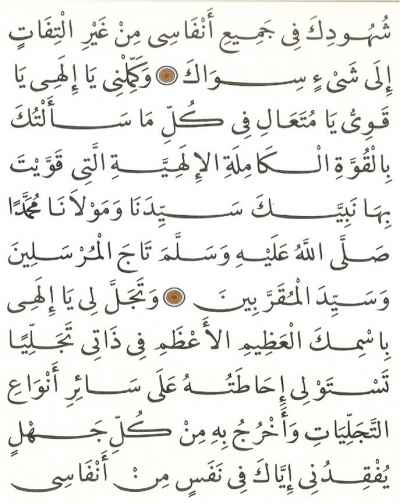 شُهُودِكَ فِى جَمِيعِ أَنْفَاسِى مِنْ غَيْرِ الْتِفَاتٍ
إِلَى شَىْءٍ سِوَاكَ ۞ وَكَمِّلْنِى يَا إِلَهِى يَا
قَوِىُّ يَا مُتَعَالِ فِى كُلِّ مَا سَأَلْتُكَ
بِالْقُوَّةِ الْكَامِلَةِ الإِلَهِيَّةِ الَّتِى قَوَّيْتَ
بِهَا نَبِيَّكَ سَيِّدَنَا وَمَوْلَانَا مُحَمَّدًا
صَلَّى اللَّهُ عَلَيْهِ وَسَلَّمَ تَاجَ الْمُرْسَلِينَ
وَسَيِّدَ الْمُقَرَّبِينَ ۞ وَتَجَلَّ لِى يَا إِلَهِى
بِاسْمِكَ الْعَظِيمِ الأَعْظَمِ فِى ذَاتِى تَجَلِّيًا
تَسْتَوْلِى إِحَاطَتُهُ عَلَى سَائِرِ أَنْوَاعِ
التَّجَلِّيَاتِ وَأَخْرُجُ بِهِ مِنْ كُلِّ جَهْلٍ
يُفْقِدُنِى إِيَّاكَ فِى نَفَسٍ مِنْ أَنْفَاسِى